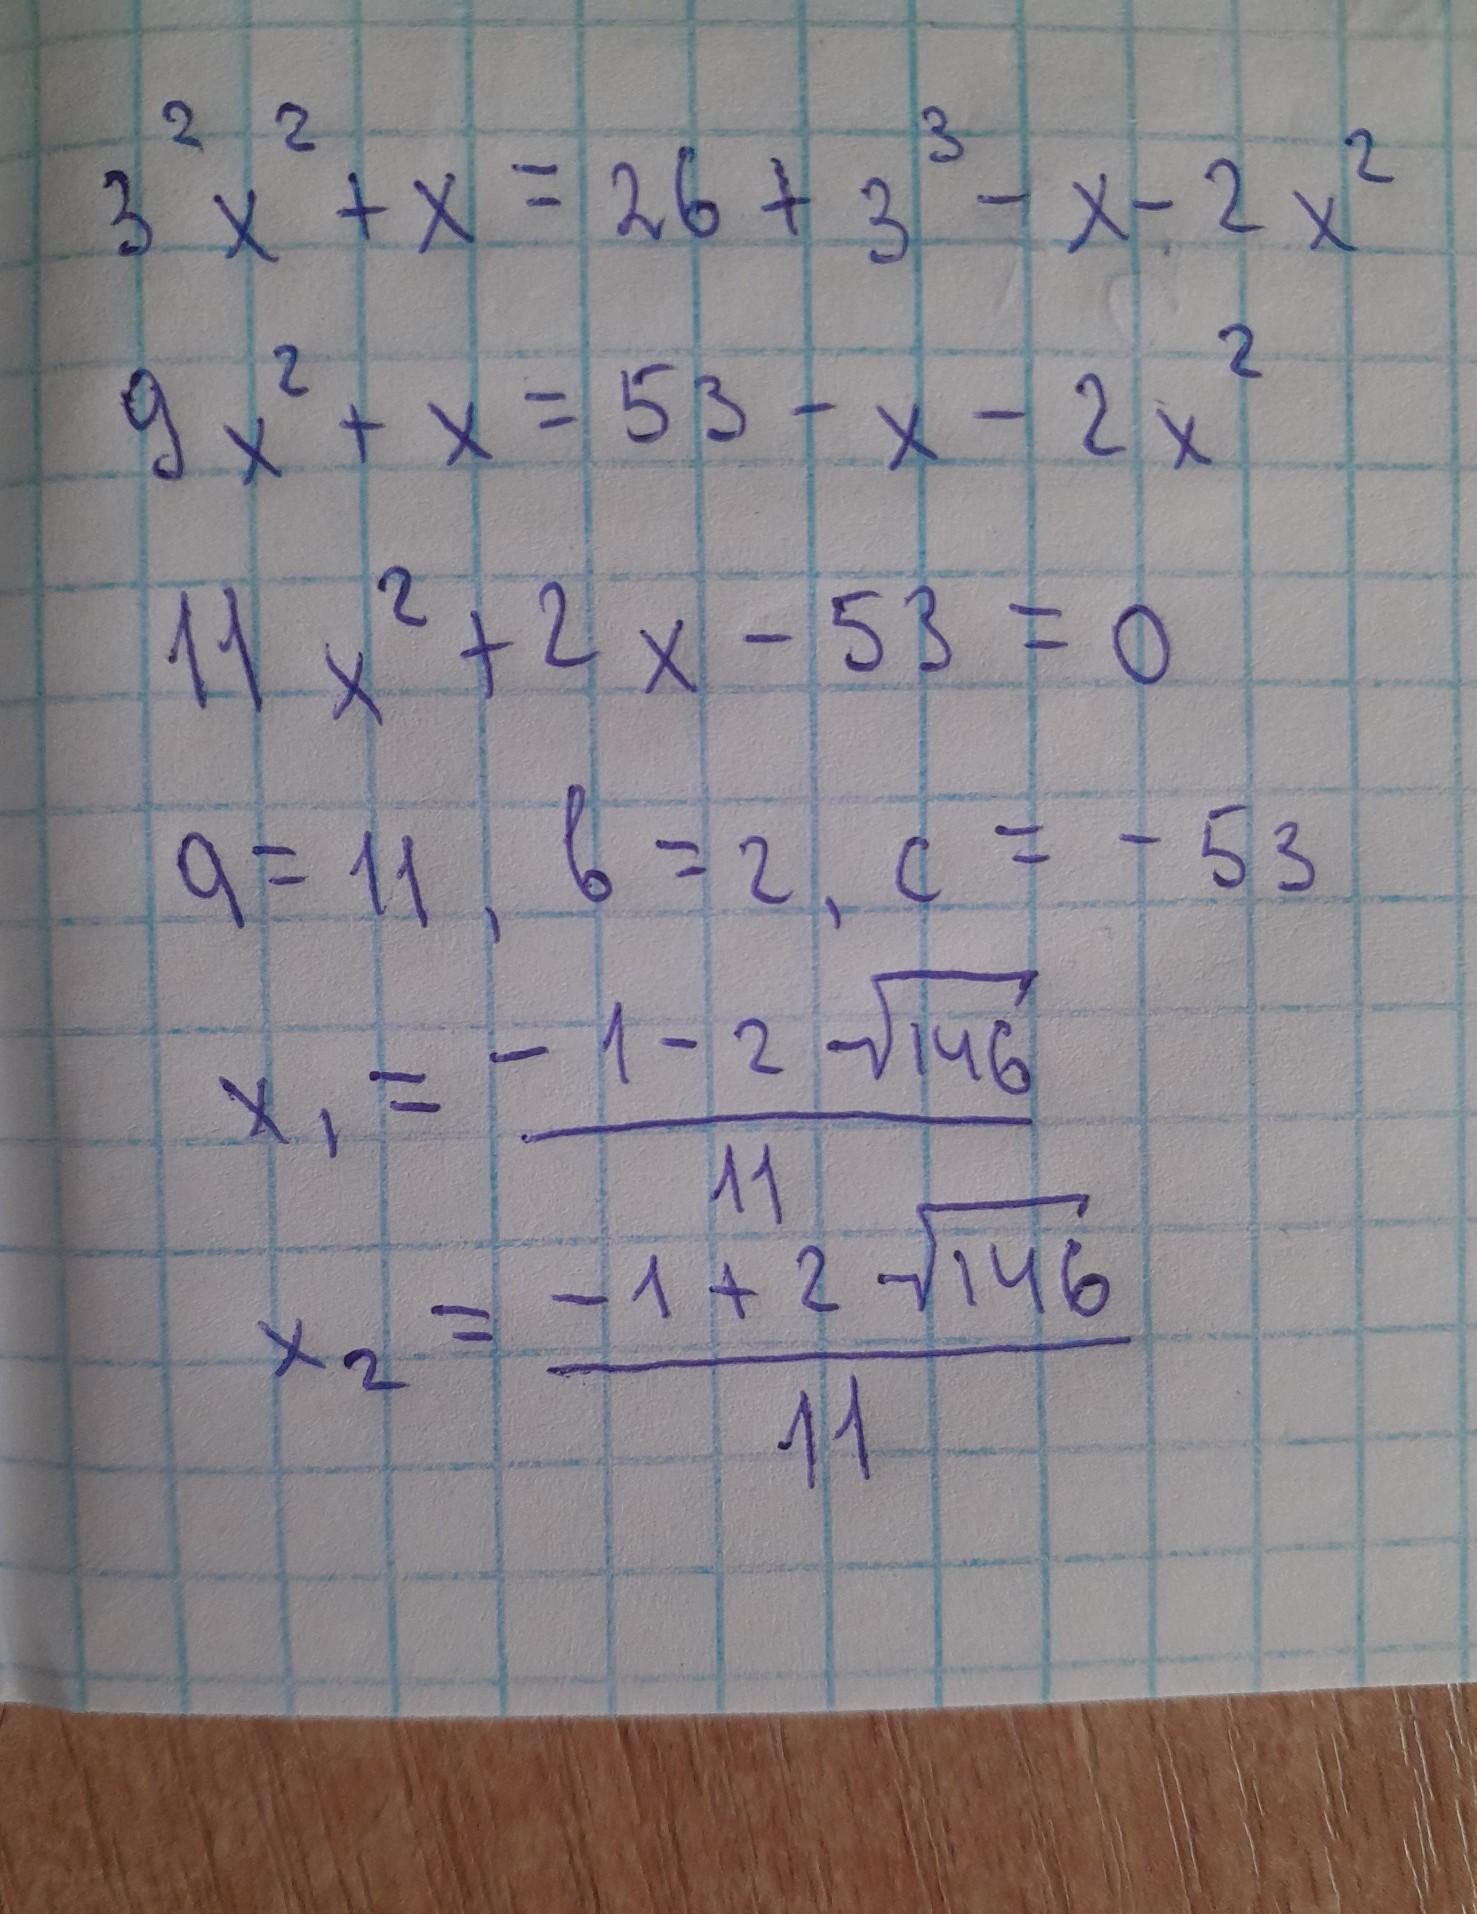 3² x² + x = 26 + 3³ - x - 2x²
9x² + x = 53 - x - 2x²
11x² + 2x - 53 = 0
a = 11, b = 2, c = -53
x₁ = (-1 - 2√146) / 11
x₂ = (-1 + 2√146) / 11